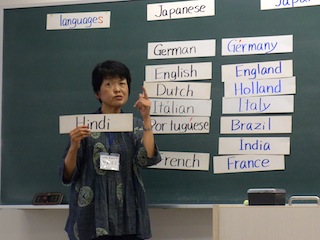 languages
Japanese
Japa
German
Gérmany
English
England
Dutch
Holland
Itálian
Italy
Portuguése
Brazil
Hindi
India
French
France